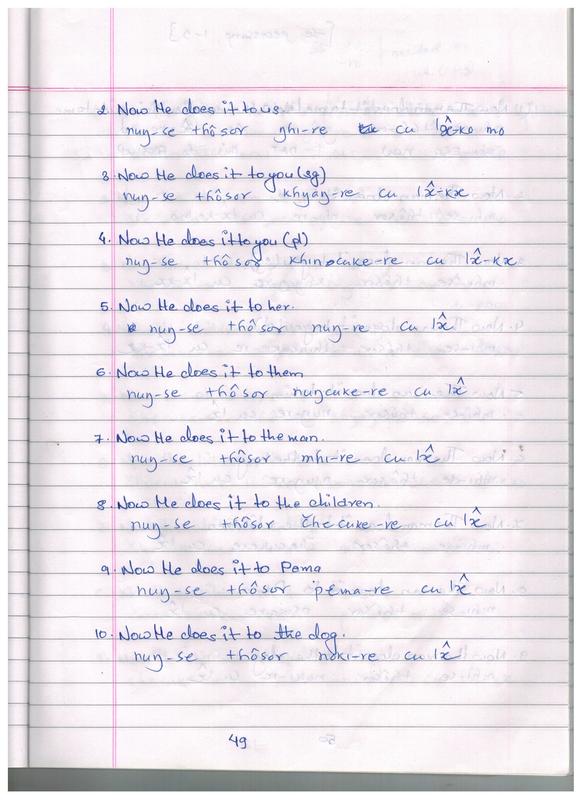 2. Now He does it to us.
nuŋ-se thôsor ŋhi-re cu lx̂-ko mo
3. Now He does it to you (sg)
nuŋ-se thôsor khyaŋ-re cu lx̂-kx
4. Now He does it to you (pl)
nuŋ-se thôsor khincuke-re cu lx̂-kx
5. Now He does it to her.
nuŋ-se thôsor nuŋ-re cu lx̂
6. Now He does it to them
nuŋ-se thôsor nuŋcuke-re cu lx̂
7. Now He does it to the man.
nuŋ-se thôsor mhi-re cu lx̂
8. Now He does it to the children.
nuŋ-se thôsor čhecuke-re cu lx̂
9. Now He does it to Pema
nuŋ-se thôsor pɛma-re cu lx̂
10. Now He does it to the dog.
nuŋ-se thôsor noki-re cu lx̂
49